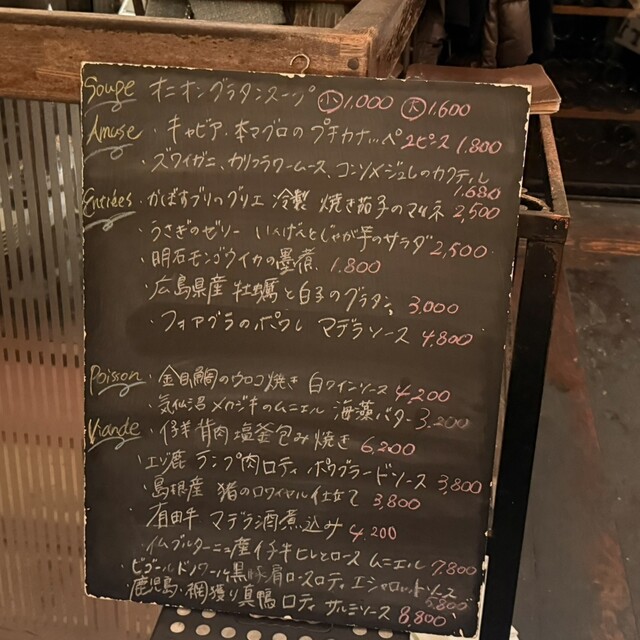 Soupe オニオングラタンスープ 小 1,000 大 1,600
Amuse ・キャビア、本マグロのプチカナッペ 2ピース 1,800
・ズワイガニ、カリフラワームース、コンソメジュレのカクテル 1,680
Entrées ・かぼすブリのグリエ 冷製 焼き茄子のマリネ 2,500
・うさぎのゼリー いんげんとじゃが芋のサラダ 2,500
・明石モンゴウイカの墨煮 1,800
・広島県産 牡蠣と白子のグラタン 3,000
・フォアグラのポワレ マデラソース 4,800
Poisson ・金目鯛のウロコ焼き 白ワインソース 4,200
・気仙沼メカジキのムニエル 海藻バター 3,200
Viande ・仔羊背肉塩釜包み焼き 6,200
・エゾ鹿 ランプ肉ロティ ポワブラードソース 3,800
・島根産 猪のロワイヤル仕立て 3,800
・有田牛 マデラ酒煮込み 4,200
・仏ブルターニュ産仔牛ヒレとロース ムニエル 7,800
・ビゴールドノワール黒豚肩ロースロティ エシャロットソース 5,800
・鹿児島・網獲り真鴨ロティ サルミソース 8,800